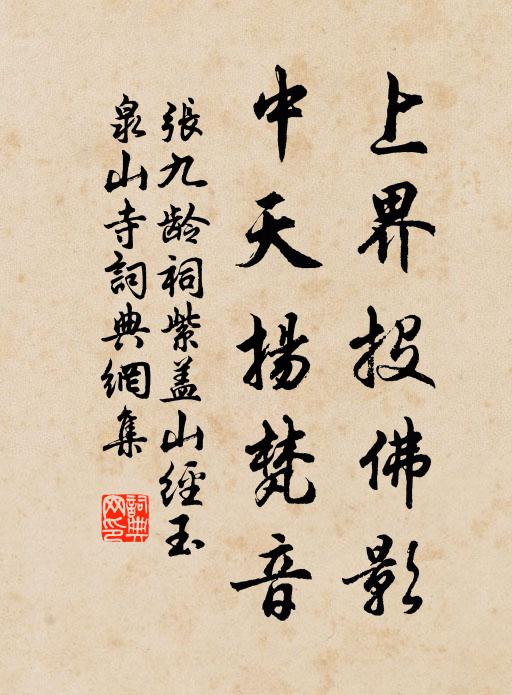 上界投佛影
中天揚梵音
張九龄祠紫盖山經玉
泉山寺詞典網集
詞典
网印